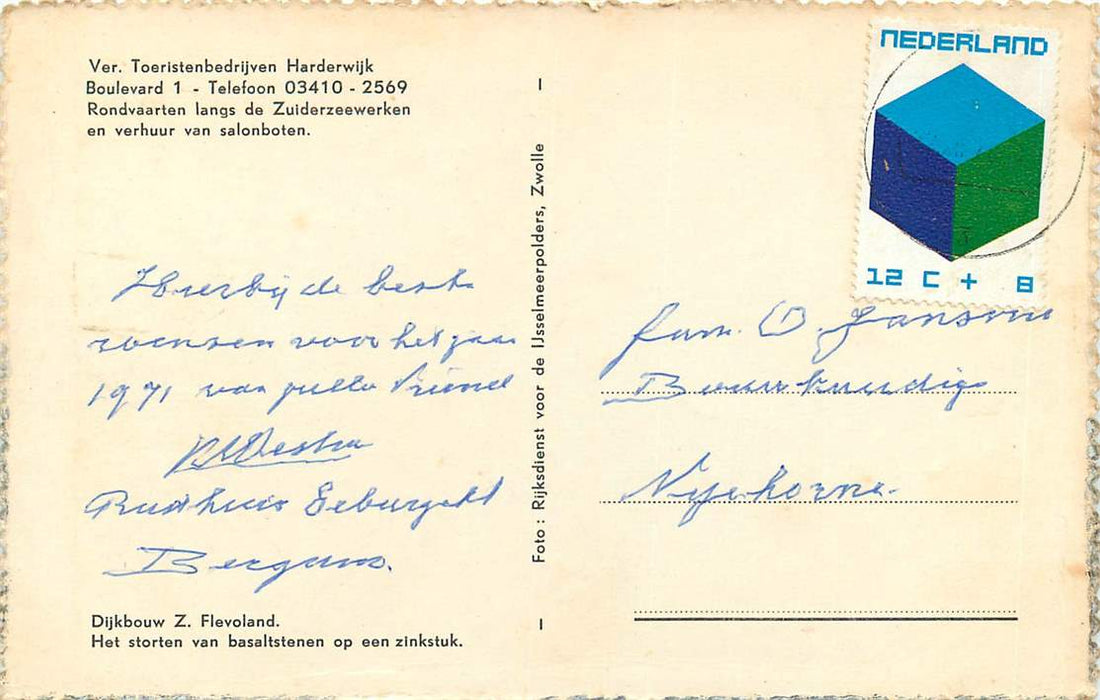 Ver. Toeristenbedrijven Harderwijk
Boulevard 1 - Telefoon 03410 - 2569
Rondvaarten langs de Zuiderzeewerken
en verhuur van salonboten.
Hierbij de beste
wensen voor het jaar
1971 van jullie vriend
Rusthuis
Bergum.
Dijkbouw Z. Flevoland.
Het storten van basaltstenen op een zinkstuk.
Foto: Rijksdienst voor de IJsselmeerpolders, Zwolle
NEDERLAND
12 C + 8
Fam. O. Jansma
Bouwkundige
Nijehorne.